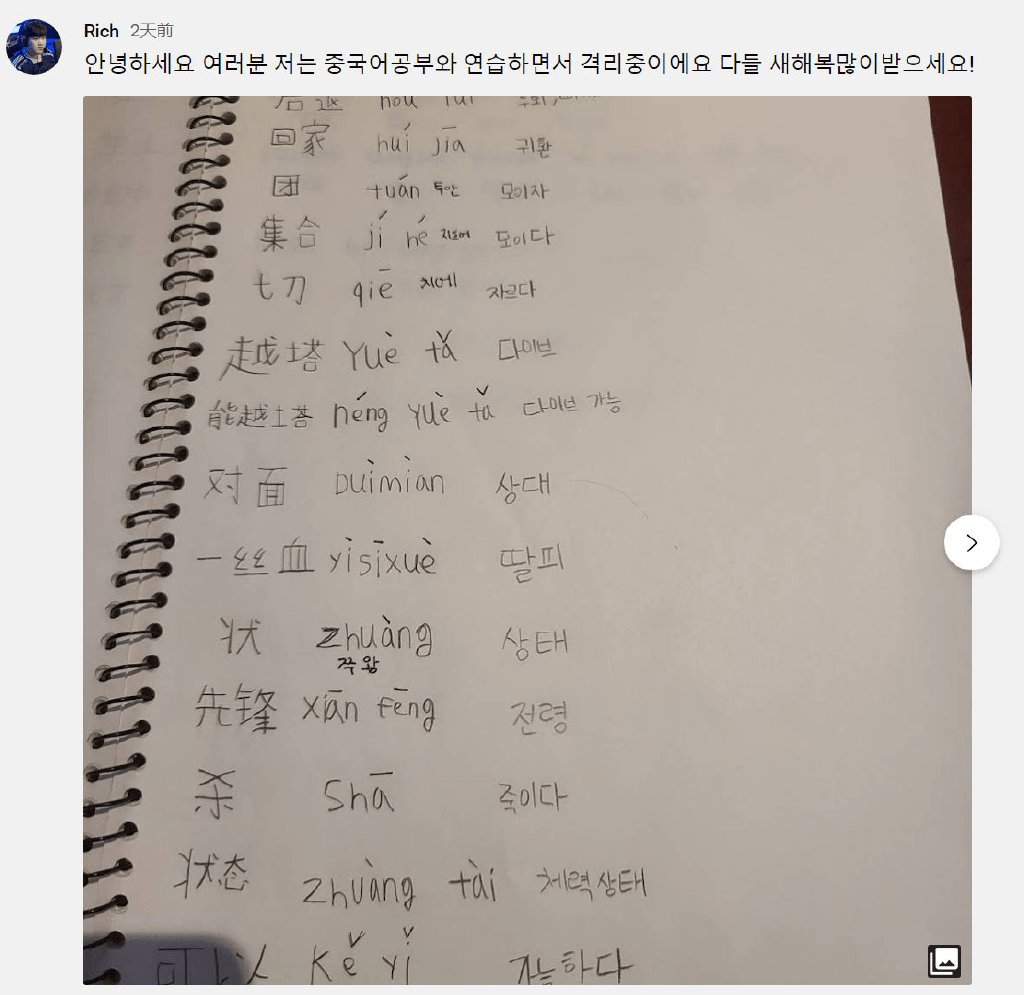 Rich 2天前
안녕하세요 여러분 저는 중국어공부와 연습하면서 격리중이에요 다들 새해복많이받으세요!
后退 hòu tuì 후퇴,
回家 huí jiā 귀환
团 tuán 투안 모이자
集合 jí hé 지흐어 모이다
切 qiē 치에 자르다
越塔 Yuè tǎ 다이브
能越塔 néng yuè tǎ 다이브 가능
对面 Duìmiàn 상대
一丝血 yìsīxuè 딸피
状 zhuàng 상태
쭈왕
先锋 xiān fēng 전령
杀 Shā 죽이다
状态 zhuàng tài 체력상태
可以 kě yǐ 가능하다